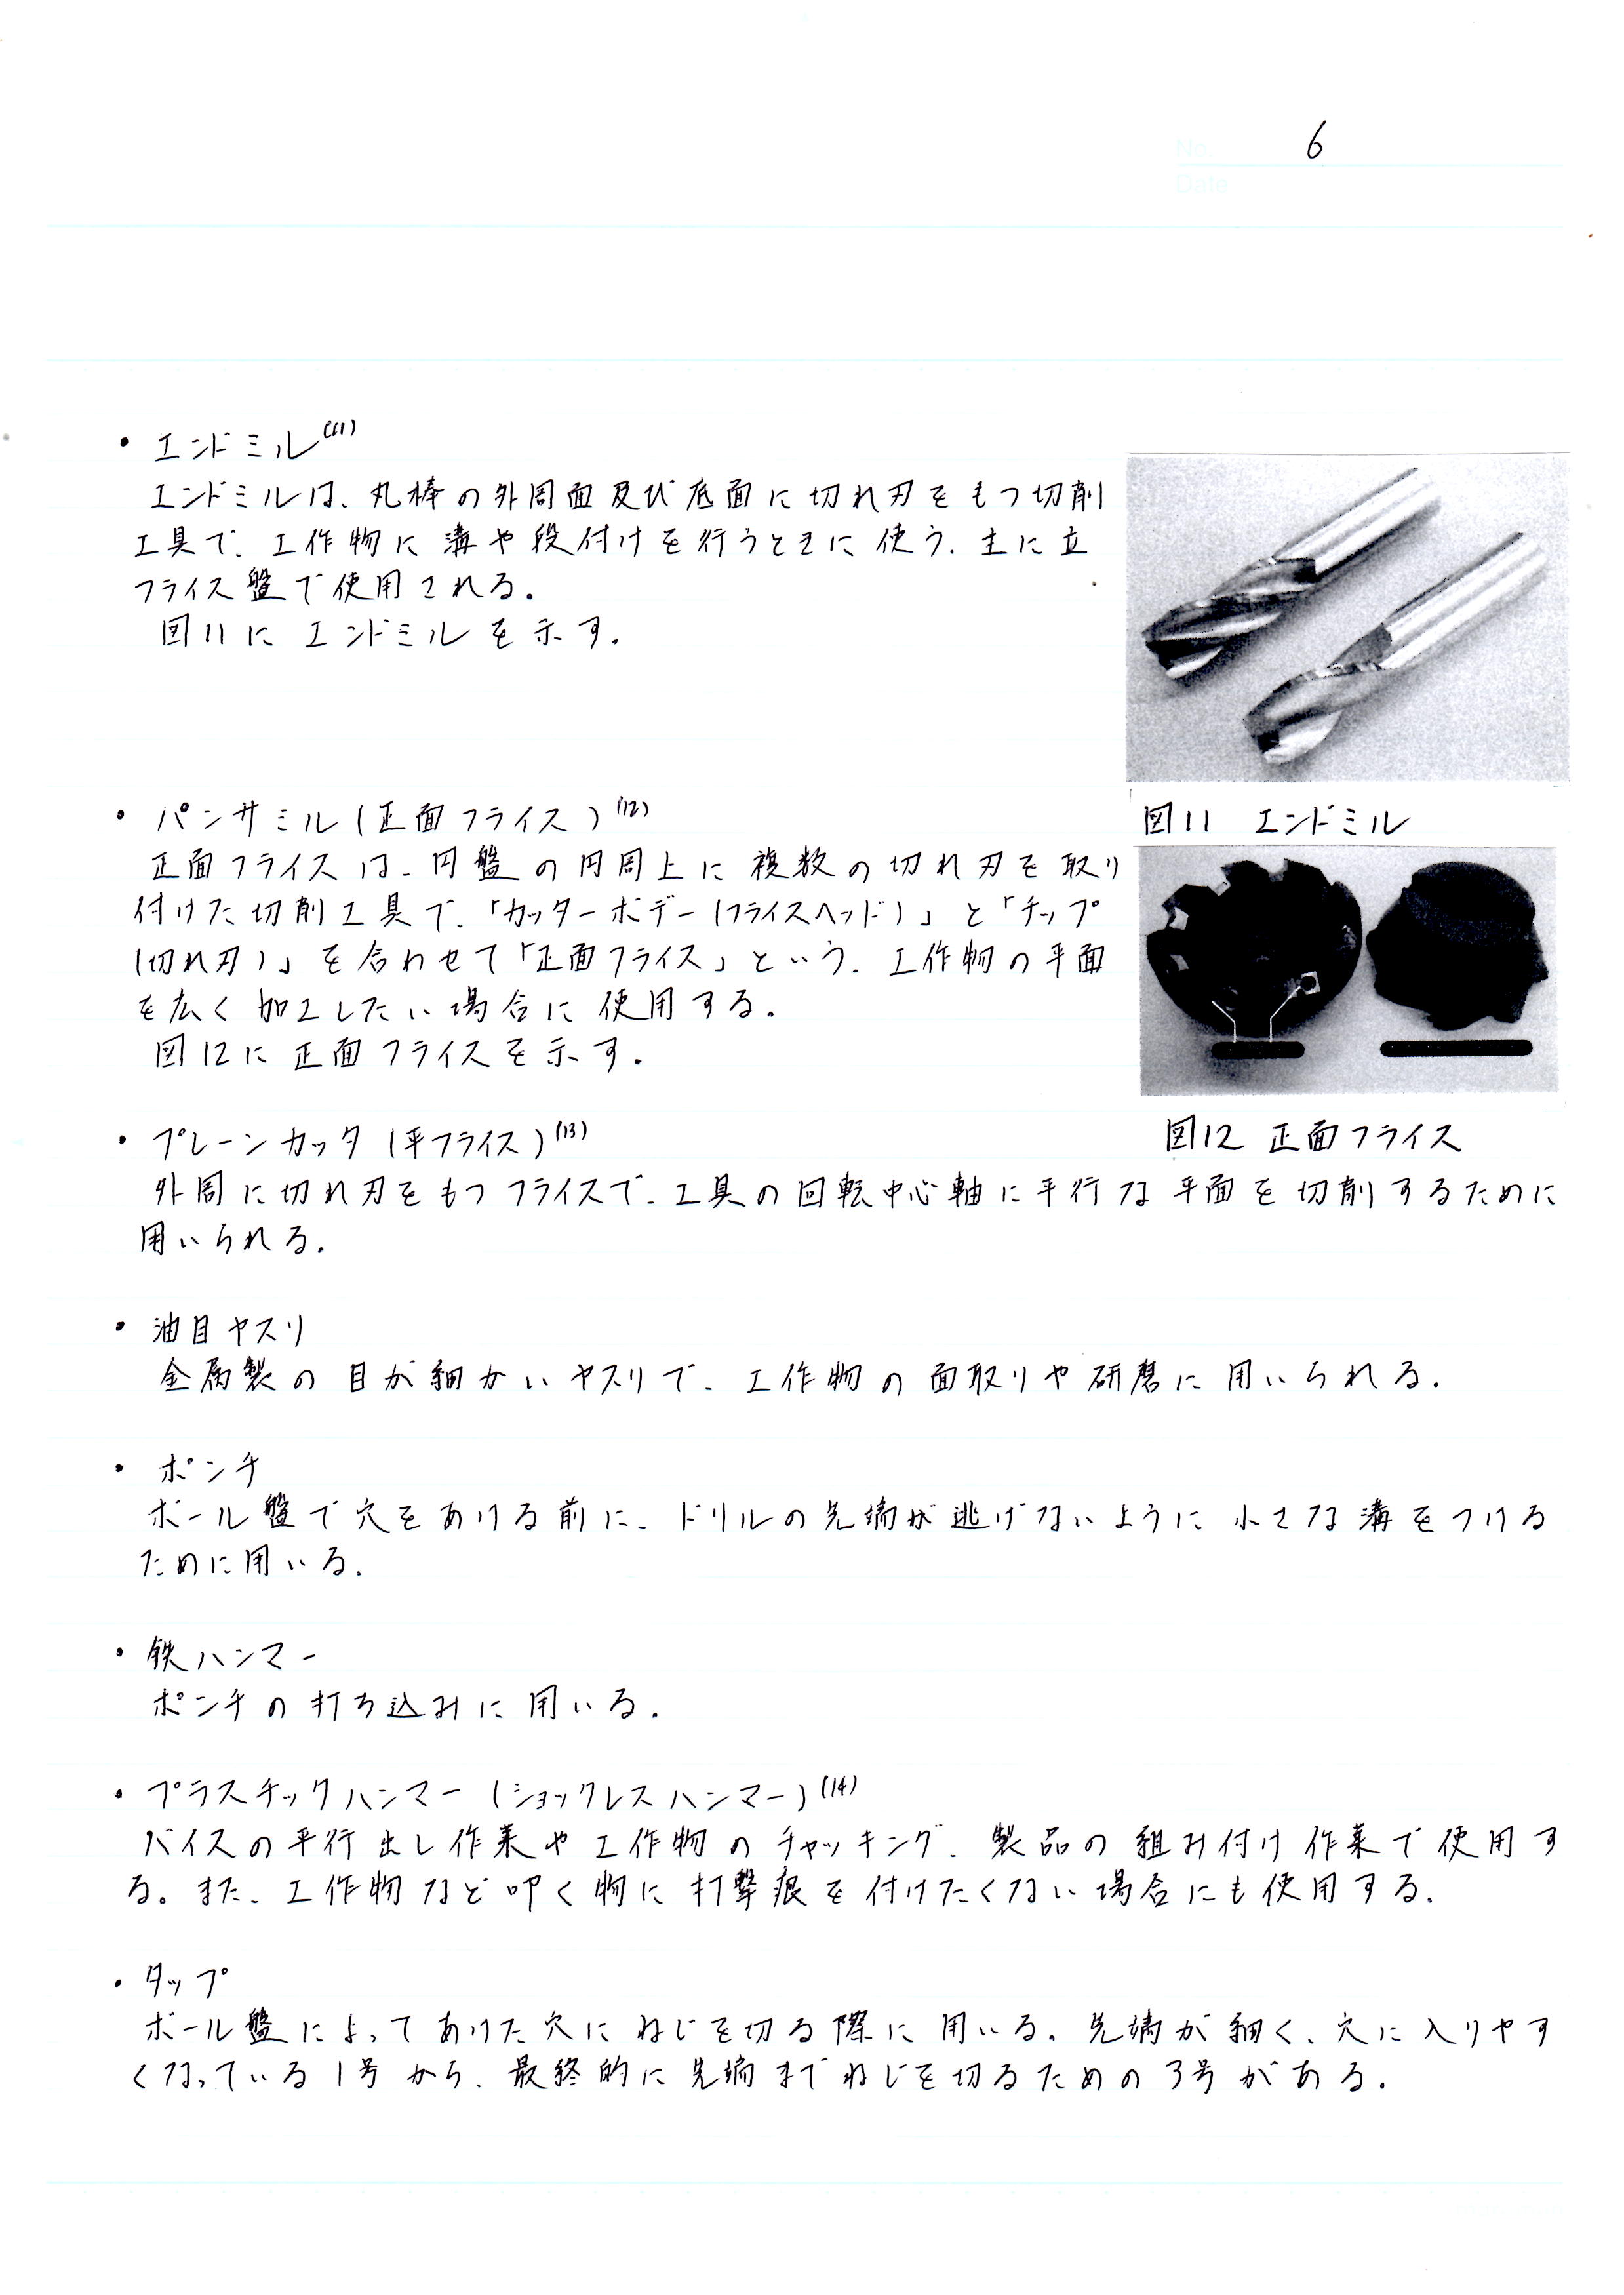 No. 6
Date
・エンドミル(11)
エンドミルは、丸棒の外周面及び底面に切れ刃をもつ切削
工具で、工作物に溝や段付けを行うときに使う。主に立
フライス盤で使用される。
図11にエンドミルを示す。
図11 エンドミル
・パンサミル(正面フライス)(12)
正面フライスは、円盤の円周上に複数の切れ刃を取り
付けた切削工具で、「カッターボデー(フライスヘッド)」と「チップ
(切れ刃)」を合わせて「正面フライス」という。工作物の平面
を広く加工したい場合に使用する。
図12に正面フライスを示す。
図12 正面フライス
・プレーンカッタ(平フライス)(13)
外周に切れ刃をもつフライスで、工具の回転中心軸に平行な平面を切削するために
用いられる。
・油目ヤスリ
金属製の目が細かいヤスリで、工作物の面取りや研磨に用いられる。
・ポンチ
ボール盤で穴をあける前に、ドリルの先端が逃げないように小さな溝をつける
ために用いる。
・鉄ハンマー
ポンチの打ち込みに用いる。
・プラスチックハンマー(ショックレスハンマー)(14)
バイスの平行出し作業や工作物のチャッキング、製品の組み付け作業で使用す
る。また、工作物など叩く物に打撃痕を付けたくない場合にも使用する。
・タップ
ボール盤によってあけた穴にねじを切る際に用いる。先端が細く、穴に入りやす
くなっている1号から、最終的に先端までねじを切るための3号がある。